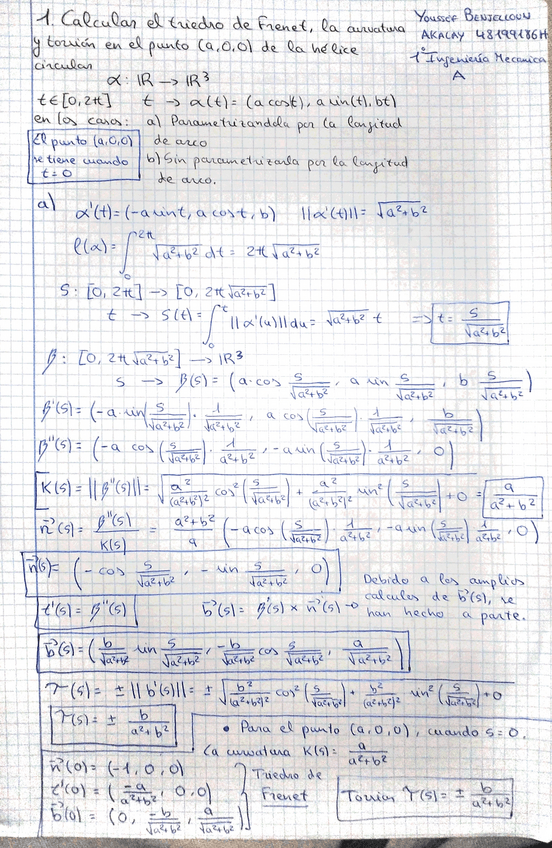 1. Calcular el triedro de Frenet, la curvatura
y torsión en el punto (a,0,0) de la hélice
circular
Youssef Benjelloun
AKALAY 48199186H
1º Ingeniería Mecanica
A
α: IR → IR³
t∈[0,2π] t → α(t) = (a cost, a sin(t), bt)
en los casos: a) Parametrizandola por la longitud
de arco
b) Sin parametrizarla por la longitud
de arco.
El punto (a,0,0)
se tiene cuando
t=0
a) α'(t)=(-a sint, a cost, b) ||α'(t)||= √(a²+b²)
ℓ(α)= ∫₀^2π √(a²+b²) dt = 2π √(a²+b²)
S: [0,2π] → [0, 2π√(a²+b²)]
t → S(t)= ∫₀^t ||α'(u)||du = √(a²+b²) t => t = s/√(a²+b²)
β: [0, 2π √(a²+b²)] → IR³
s → β(s) = (a·cos s/√(a²+b²), a sin s/√(a²+b²), b s/√(a²+b²))
β'(s) = (-a·sin(s/√(a²+b²))·1/√(a²+b²), a cos(s/√(a²+b²))·1/√(a²+b²), b/√(a²+b²))
β''(s) = (-a cos(s/√(a²+b²))·1/(a²+b²), -a sin(s/√(a²+b²))·1/(a²+b²), 0)
K(s) = ||β''(s)|| = √(a²/(a²+b²)² cos²(s/√(a²+b²)) + a²/(a²+b²)² sin²(s/√(a²+b²)) + 0) = a/(a²+b²)
n⃗(s) = β''(s)/K(s) = (a²+b²)/a (-a cos(s/√(a²+b²)) 1/(a²+b²), -a sin(s/√(a²+b²)) 1/(a²+b²), 0)
n⃗(s) = (-cos s/√(a²+b²), -sin s/√(a²+b²), 0)
t'(s) = β''(s) b⃗(s) = β'(s) × n⃗(s) →
Debido a los amplios
calculos de b⃗(s), se
han hecho a parte.
b⃗(s) = (b/√(a²+b²) sin s/√(a²+b²), -b/√(a²+b²) cos s/√(a²+b²), a/√(a²+b²))
τ(s) = ± ||b'(s)|| = ± √(b²/(a²+b²)² cos²(s/√(a²+b²)) + b²/(a²+b²)² sin²(s/√(a²+b²)) + 0)
τ(s) = ± b/(a²+b²)
• Para el punto (a,0,0), cuando s=0.
La curvatura K(s) = a/(a²+b²)
n⃗(0) = (-1, 0, 0)
t'(0) = (-a/(a²+b²), 0, 0)
b⃗(0) = (0, -b/√(a²+b²), a/√(a²+b²))
Triedro de
Frenet
Torsion τ(s) = ± b/(a²+b²)